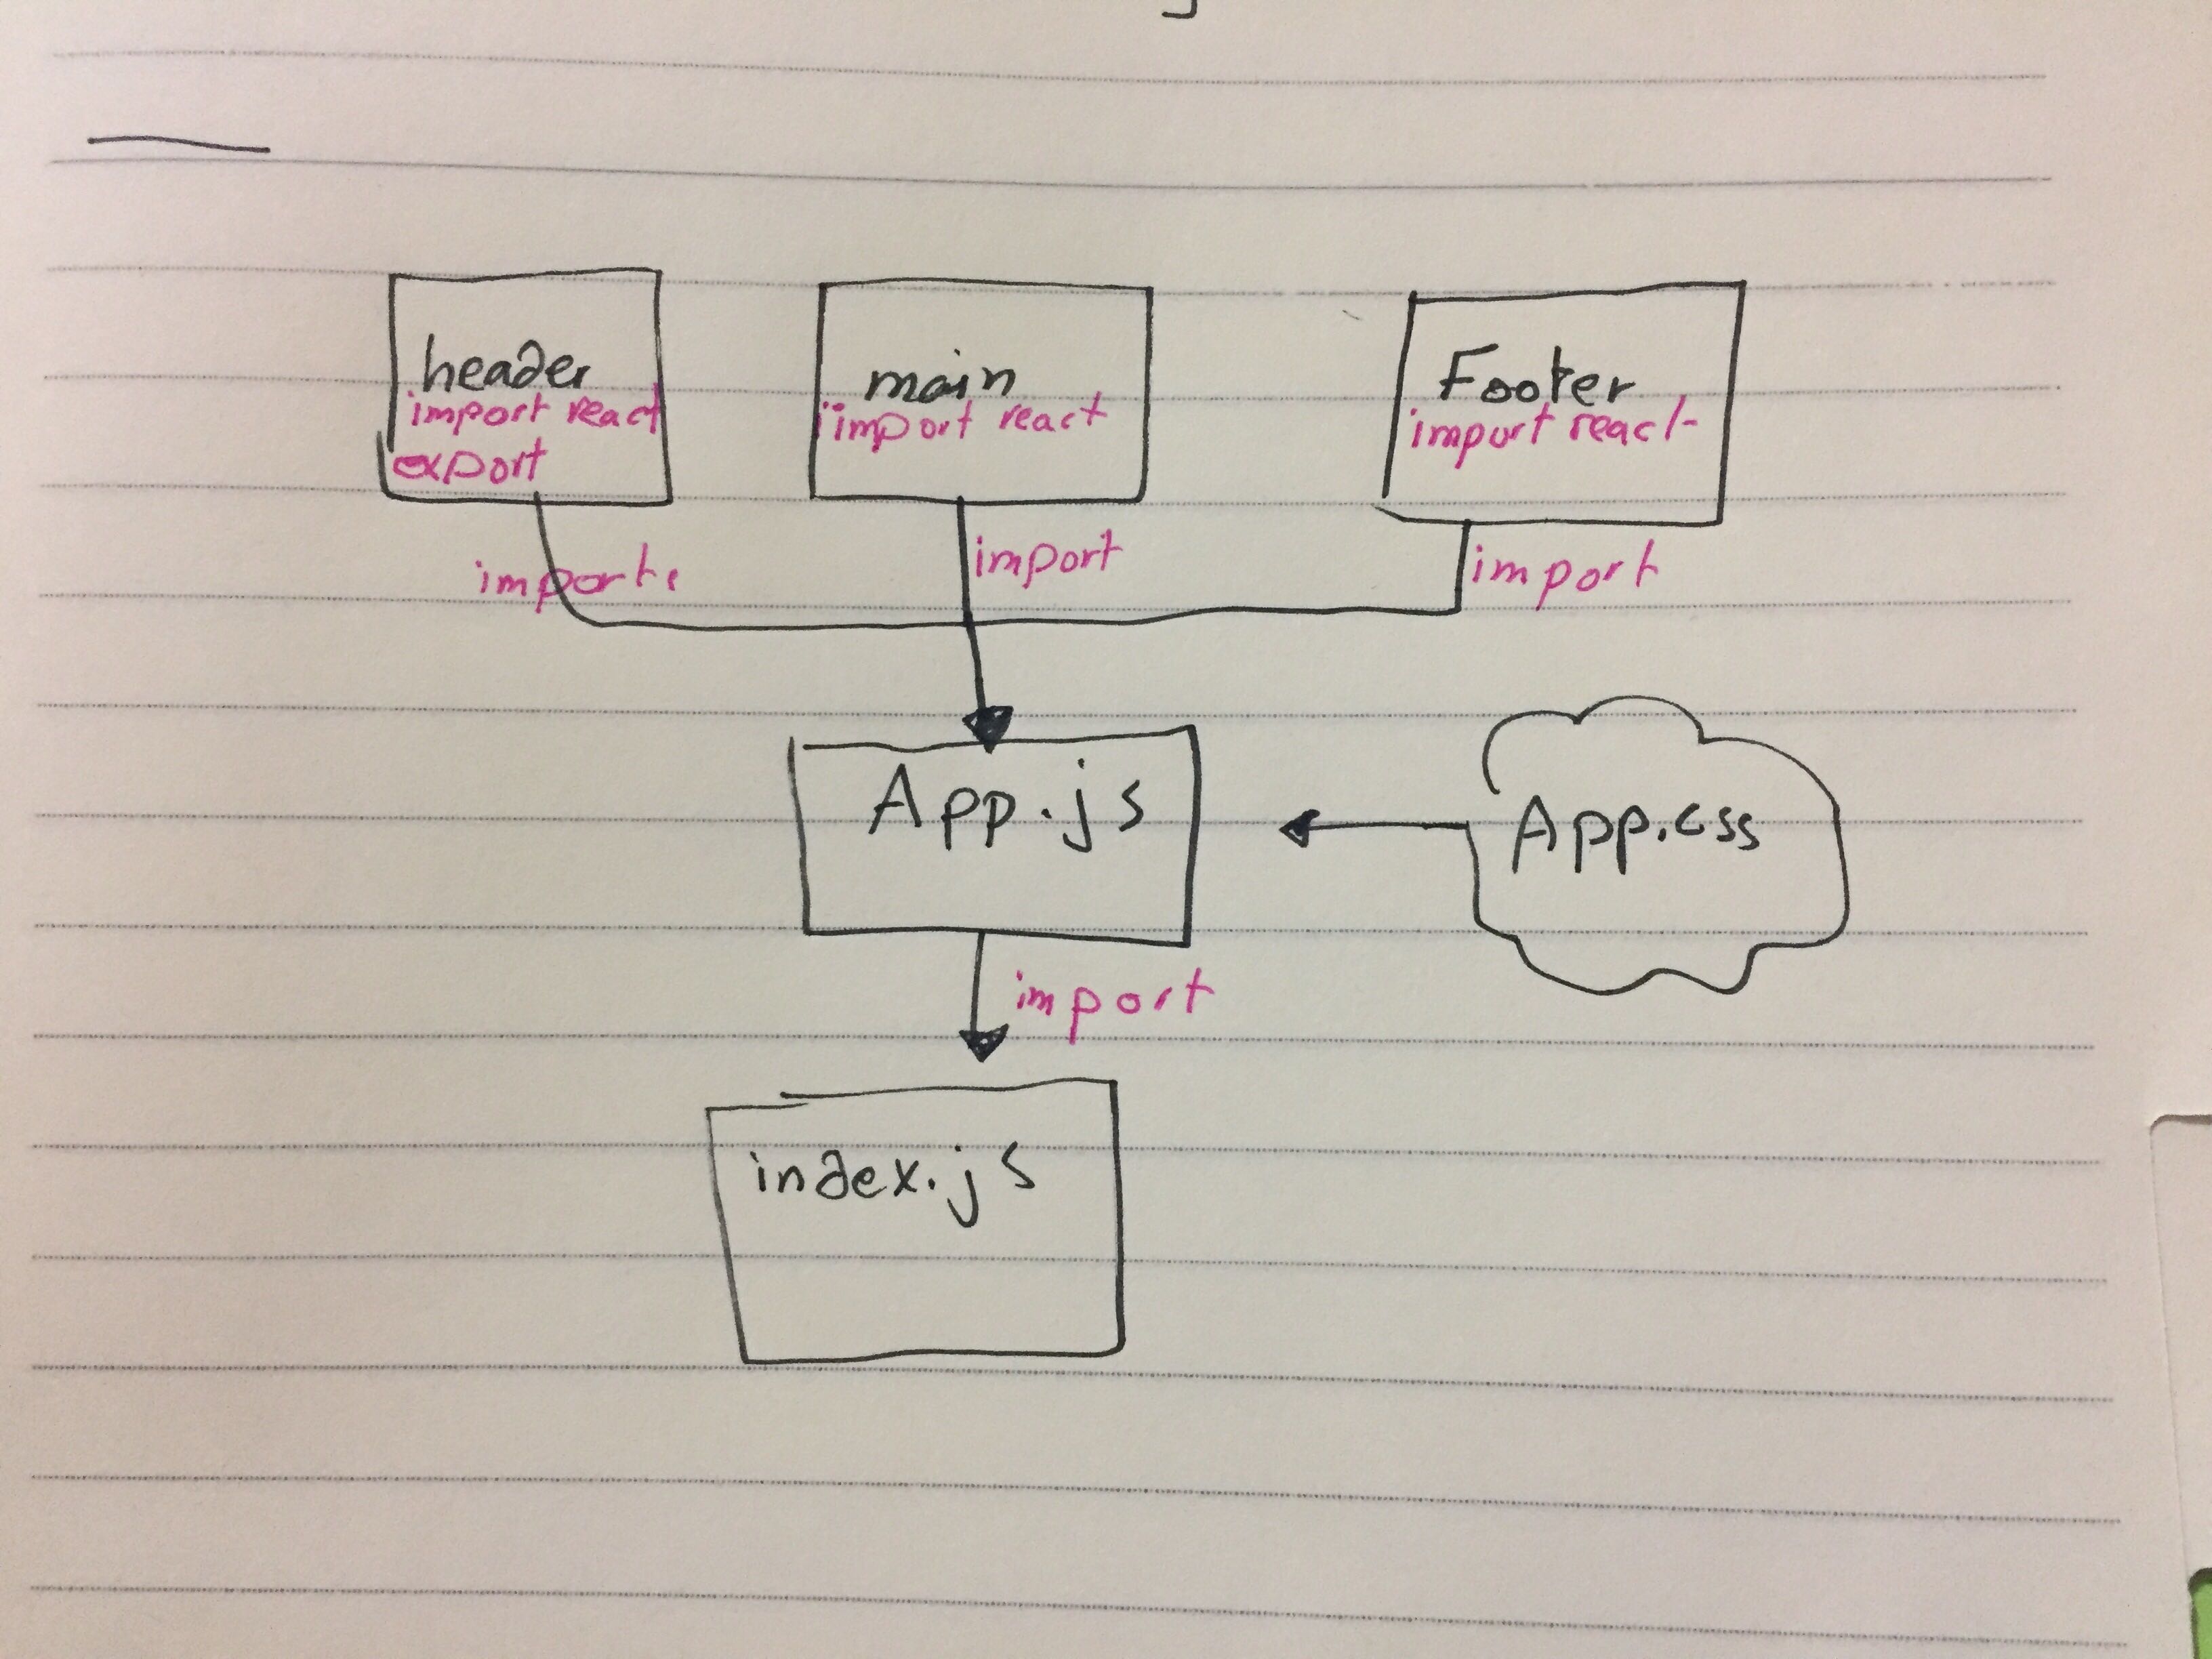 header
import react
export
main
import react
Footer
import react
import
import
import
App.js
App.css
import
index.js